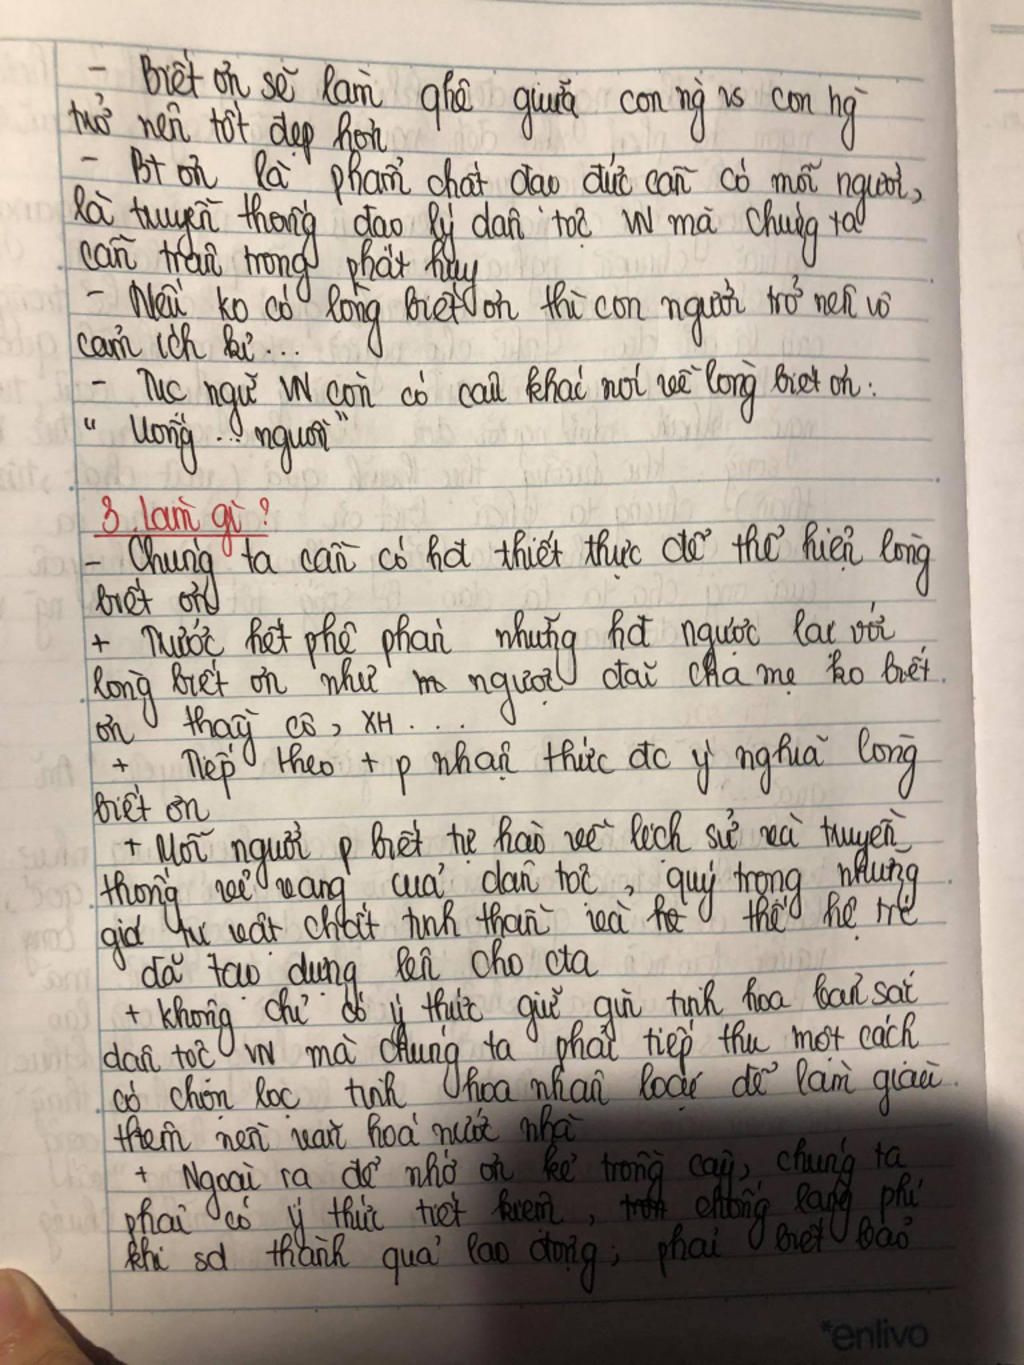 - Biết ơn sẽ làm qhệ giữa con ng vs con ng
trở nên tốt đẹp hơn
- Bt ơn là phẩm chất đạo đức cần có mỗi người,
là truyền thống đạo lý dân tộc VN mà chúng ta
cần trân trọng phát huy
- Nếu ko có lòng biết ơn thì con người trở nên vô
cảm ích kỉ...
- Tục ngữ VN còn có câu khái nói về lòng biết ơn:
" Uống ... nguồn"
3. Làm gì?
- Chúng ta cần có hđ thiết thực để thể hiện lòng
biết ơn
+ Trước hết phê phán những hđ ngược lại với
lòng biết ơn như ngược đãi cha mẹ ko biết
ơn thầy cô, XH ....
+ Tiếp theo + p nhận thức đc ý nghĩa lòng
biết ơn
+ Mỗi người p biết tự hào về lịch sử và truyền
thống vẻ vang của dân tộc, quý trọng những
giá trị vật chất tinh thần và thế hệ trẻ
đã tạo dựng lên cho cta
+ Không chỉ có ý thức giữ gìn tinh hoa bản sắc
dân tộc VN mà chúng ta phải tiếp thu một cách
có chọn lọc tinh hoa nhân loại để làm giàu
thêm nền văn hoá nước nhà
+ Ngoài ra để nhớ ơn kẻ trồng cây, chúng ta
phải có ý thức tiết kiệm, chống lãng phí
khi sd thành quả lao động; phải biết bảo
*enlivo